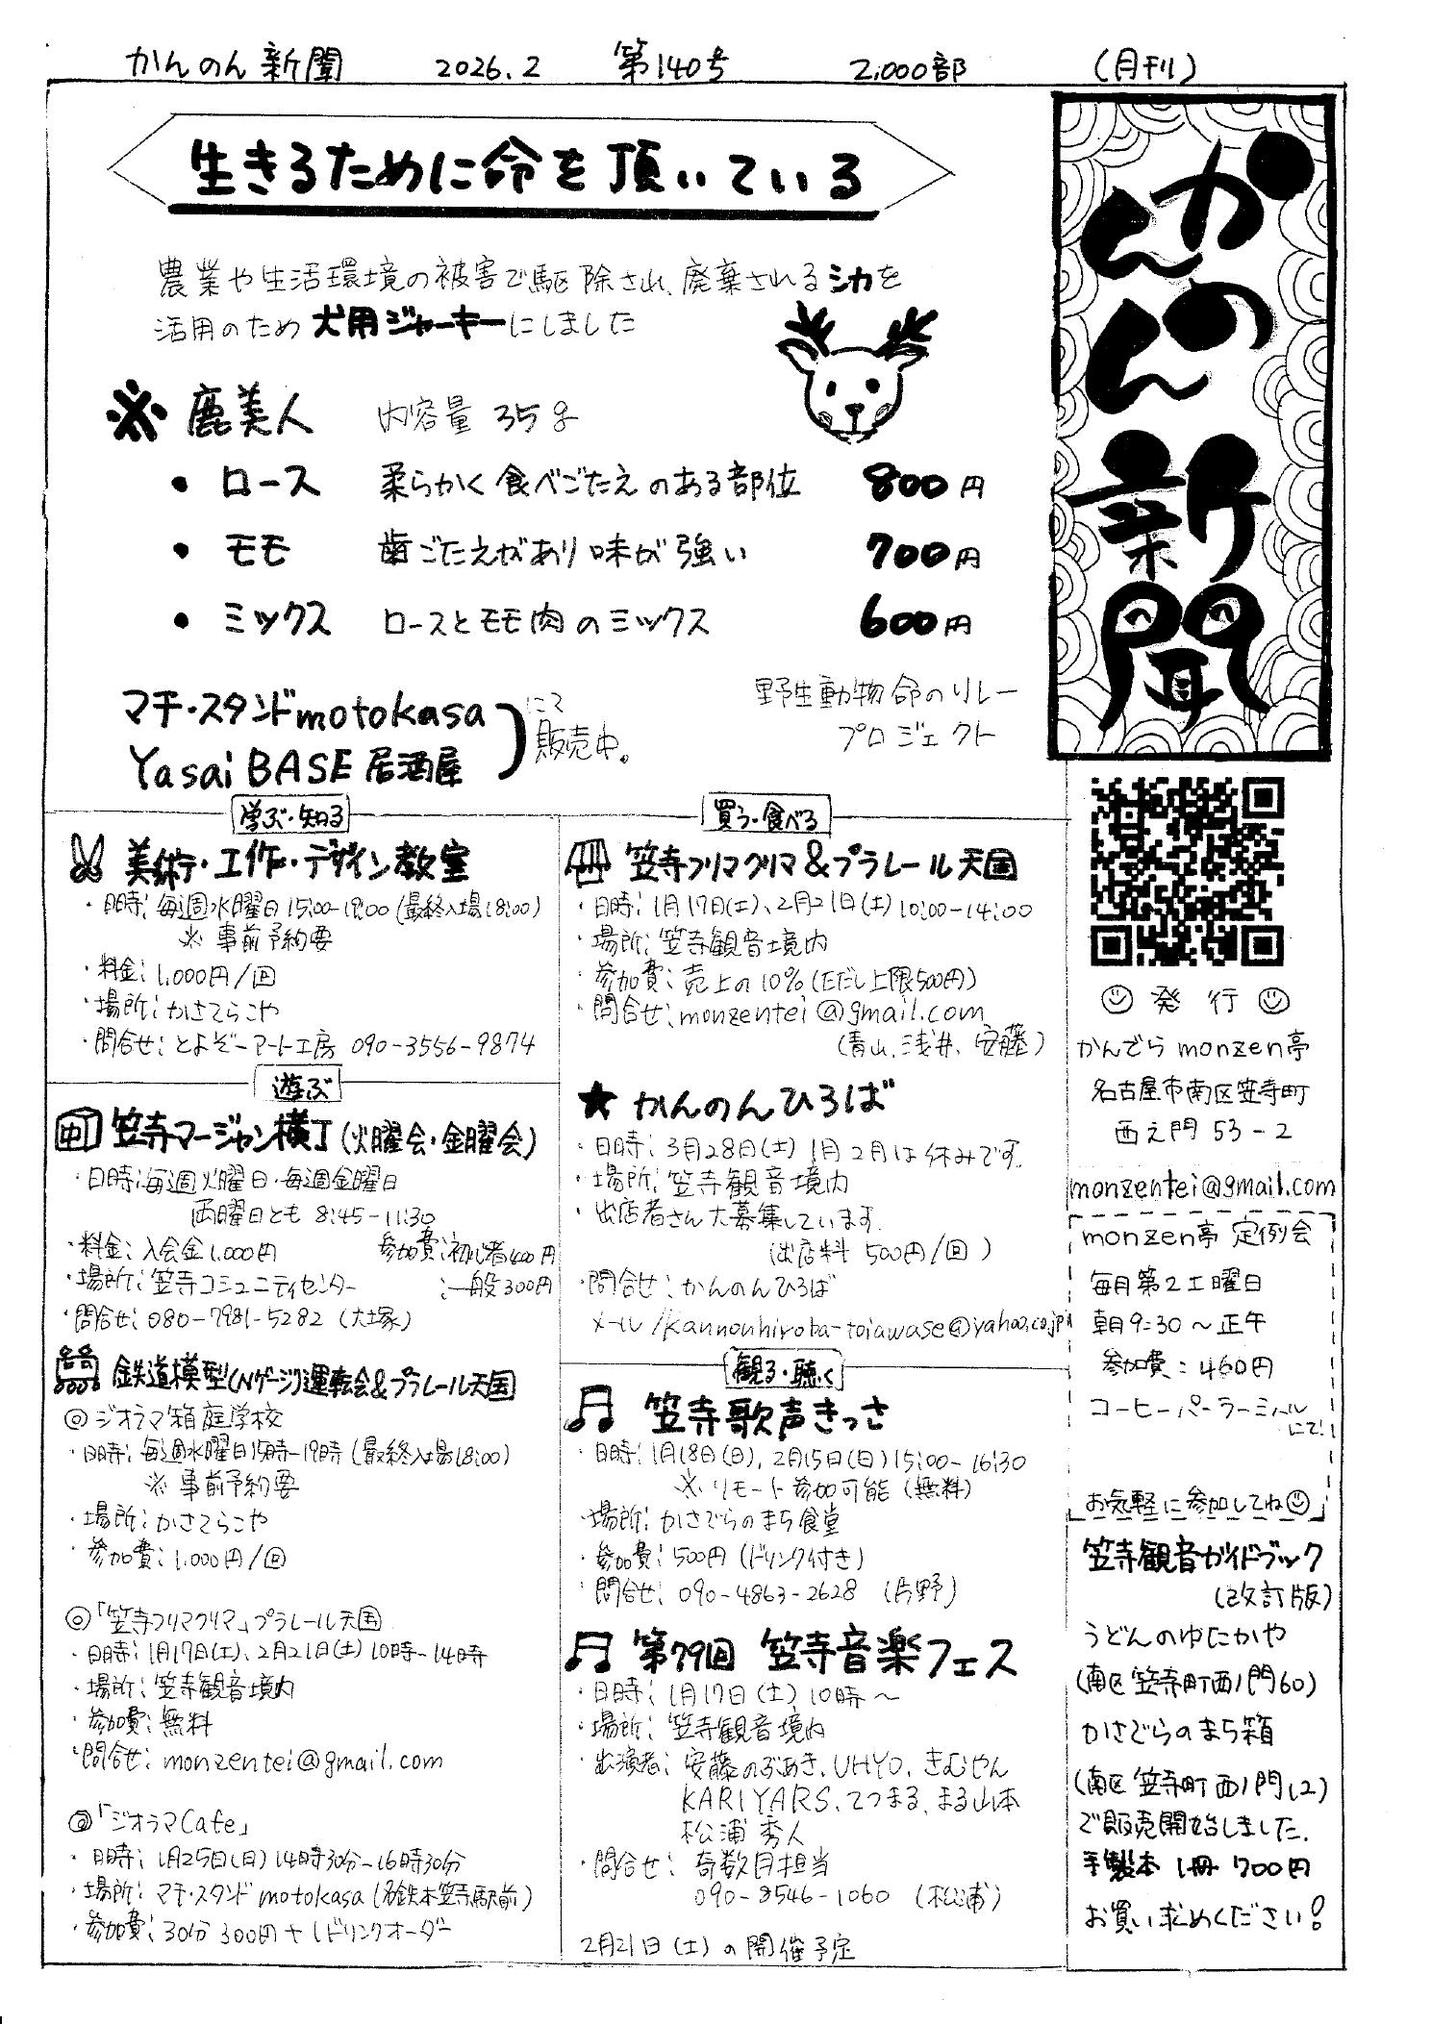 かんのん新聞 2026.2 第140号 2,000部 (月刊)
かんのん新聞
生きるために命を頂いている
農業や生活環境の被害で駆除され、廃棄されるシカを
活用のため犬用ジャーキーにしました
※ 鹿美人 内容量 35g
・ロース 柔らかく食べごたえのある部位 800円
・モモ 歯ごたえがあり味が強い 700円
・ミックス ロースとモモ肉のミックス 600円
マチ・スタンドmotokasa
Yasai BASE 居酒屋
にて
販売中。
野生動物命のリレー
プロジェクト
学ぶ・知る
美術・工作・デザイン教室
・日時:毎週水曜日15:00-19:00(最終入場18:00)
※事前予約要
・料金:1,000円/回
・場所:かさてらこや
・問合せ:とよぞーアート工房 090-3556-9874
遊ぶ
中
笠寺マージャン横丁(火曜会・金曜会)
・日時:毎週火曜日・毎週金曜日
両曜日とも 8:45-11:30
・料金:入会金1,000円 参加費:初心者400円
・場所:笠寺コミュニティセンター :一般300円
・問合せ:080-7981-5282 (大塚)
鉄道模型(Nゲージ)運転会&プラレール天国
◎ジオラマ箱庭学校
・日時:毎週水曜日15時-19時(最終入場18:00)
※事前予約要
・場所:かさてらこや
・参加費:1,000円/回
◎「笠寺フリマクリマ」プラレール天国
・日時:1月17日(土)、2月21日(土)10時-14時
・場所:笠寺観音境内
・参加費:無料
・問合せ:monzentei@gmail.com
◎「ジオラマCafe」
・日時:1月25日(日)14時30分-16時30分
・場所:マチ・スタンド motokasa(名鉄本笠寺駅前)
・参加費:30分 300円+1ドリンクオーダー
買う・食べる
笠寺フリマクリマ&プラレール天国
・日時:1月17日(土)、2月21日(土)10:00-14:00
・場所:笠寺観音境内
・参加費:売上の10%(ただし上限500円)
・問合せ:monzentei@gmail.com
(青山、浅井、安藤)
★かんのんひろば
・日時:3月28日(土) 1月2月は休みです。
・場所:笠寺観音境内
・出店者さん大募集しています。
(出店料 500円/回)
・問合せ:かんのんひろば
メール/kannonhiroba-toiawase@yahoo.co.jp
観る・聴く
笠寺歌声きっさ
・日時:1月18日(日)、2月15日(日)15:00-16:30
※リモート参加可能(無料)
・場所:かさでらのまち食堂
・参加費:500円(ドリンク付き)
・問合せ:090-4863-2628 (片野)
第79回 笠寺音楽フェス
・日時:1月17日(土)10時〜
・場所:笠寺観音境内
・出演者:安藤のぶあき、UHYO、きむやん
KARIYARS、てつまる、まる山本
松浦秀人
・問合せ:奇数月担当
090-8546-1060 (松浦)
2月21日(土)の開催予定
☺発行☺
かんでらmonzen亭
名古屋市南区笠寺町
西之門53-2
monzentei@gmail.com
monzen亭 定例会
毎月第2土曜日
朝9:30〜正午
参加費:460円
コーヒーパーラーミハル
にて!
お気軽に参加してね☺
笠寺観音ガイドブック
(改訂版)
うどんのゆにかや
(南区笠寺町西ノ門60)
かさでらのまち箱
(南区笠寺町西ノ門12)
で販売開始しました。
手製本 1冊 700円
お買い求めください!